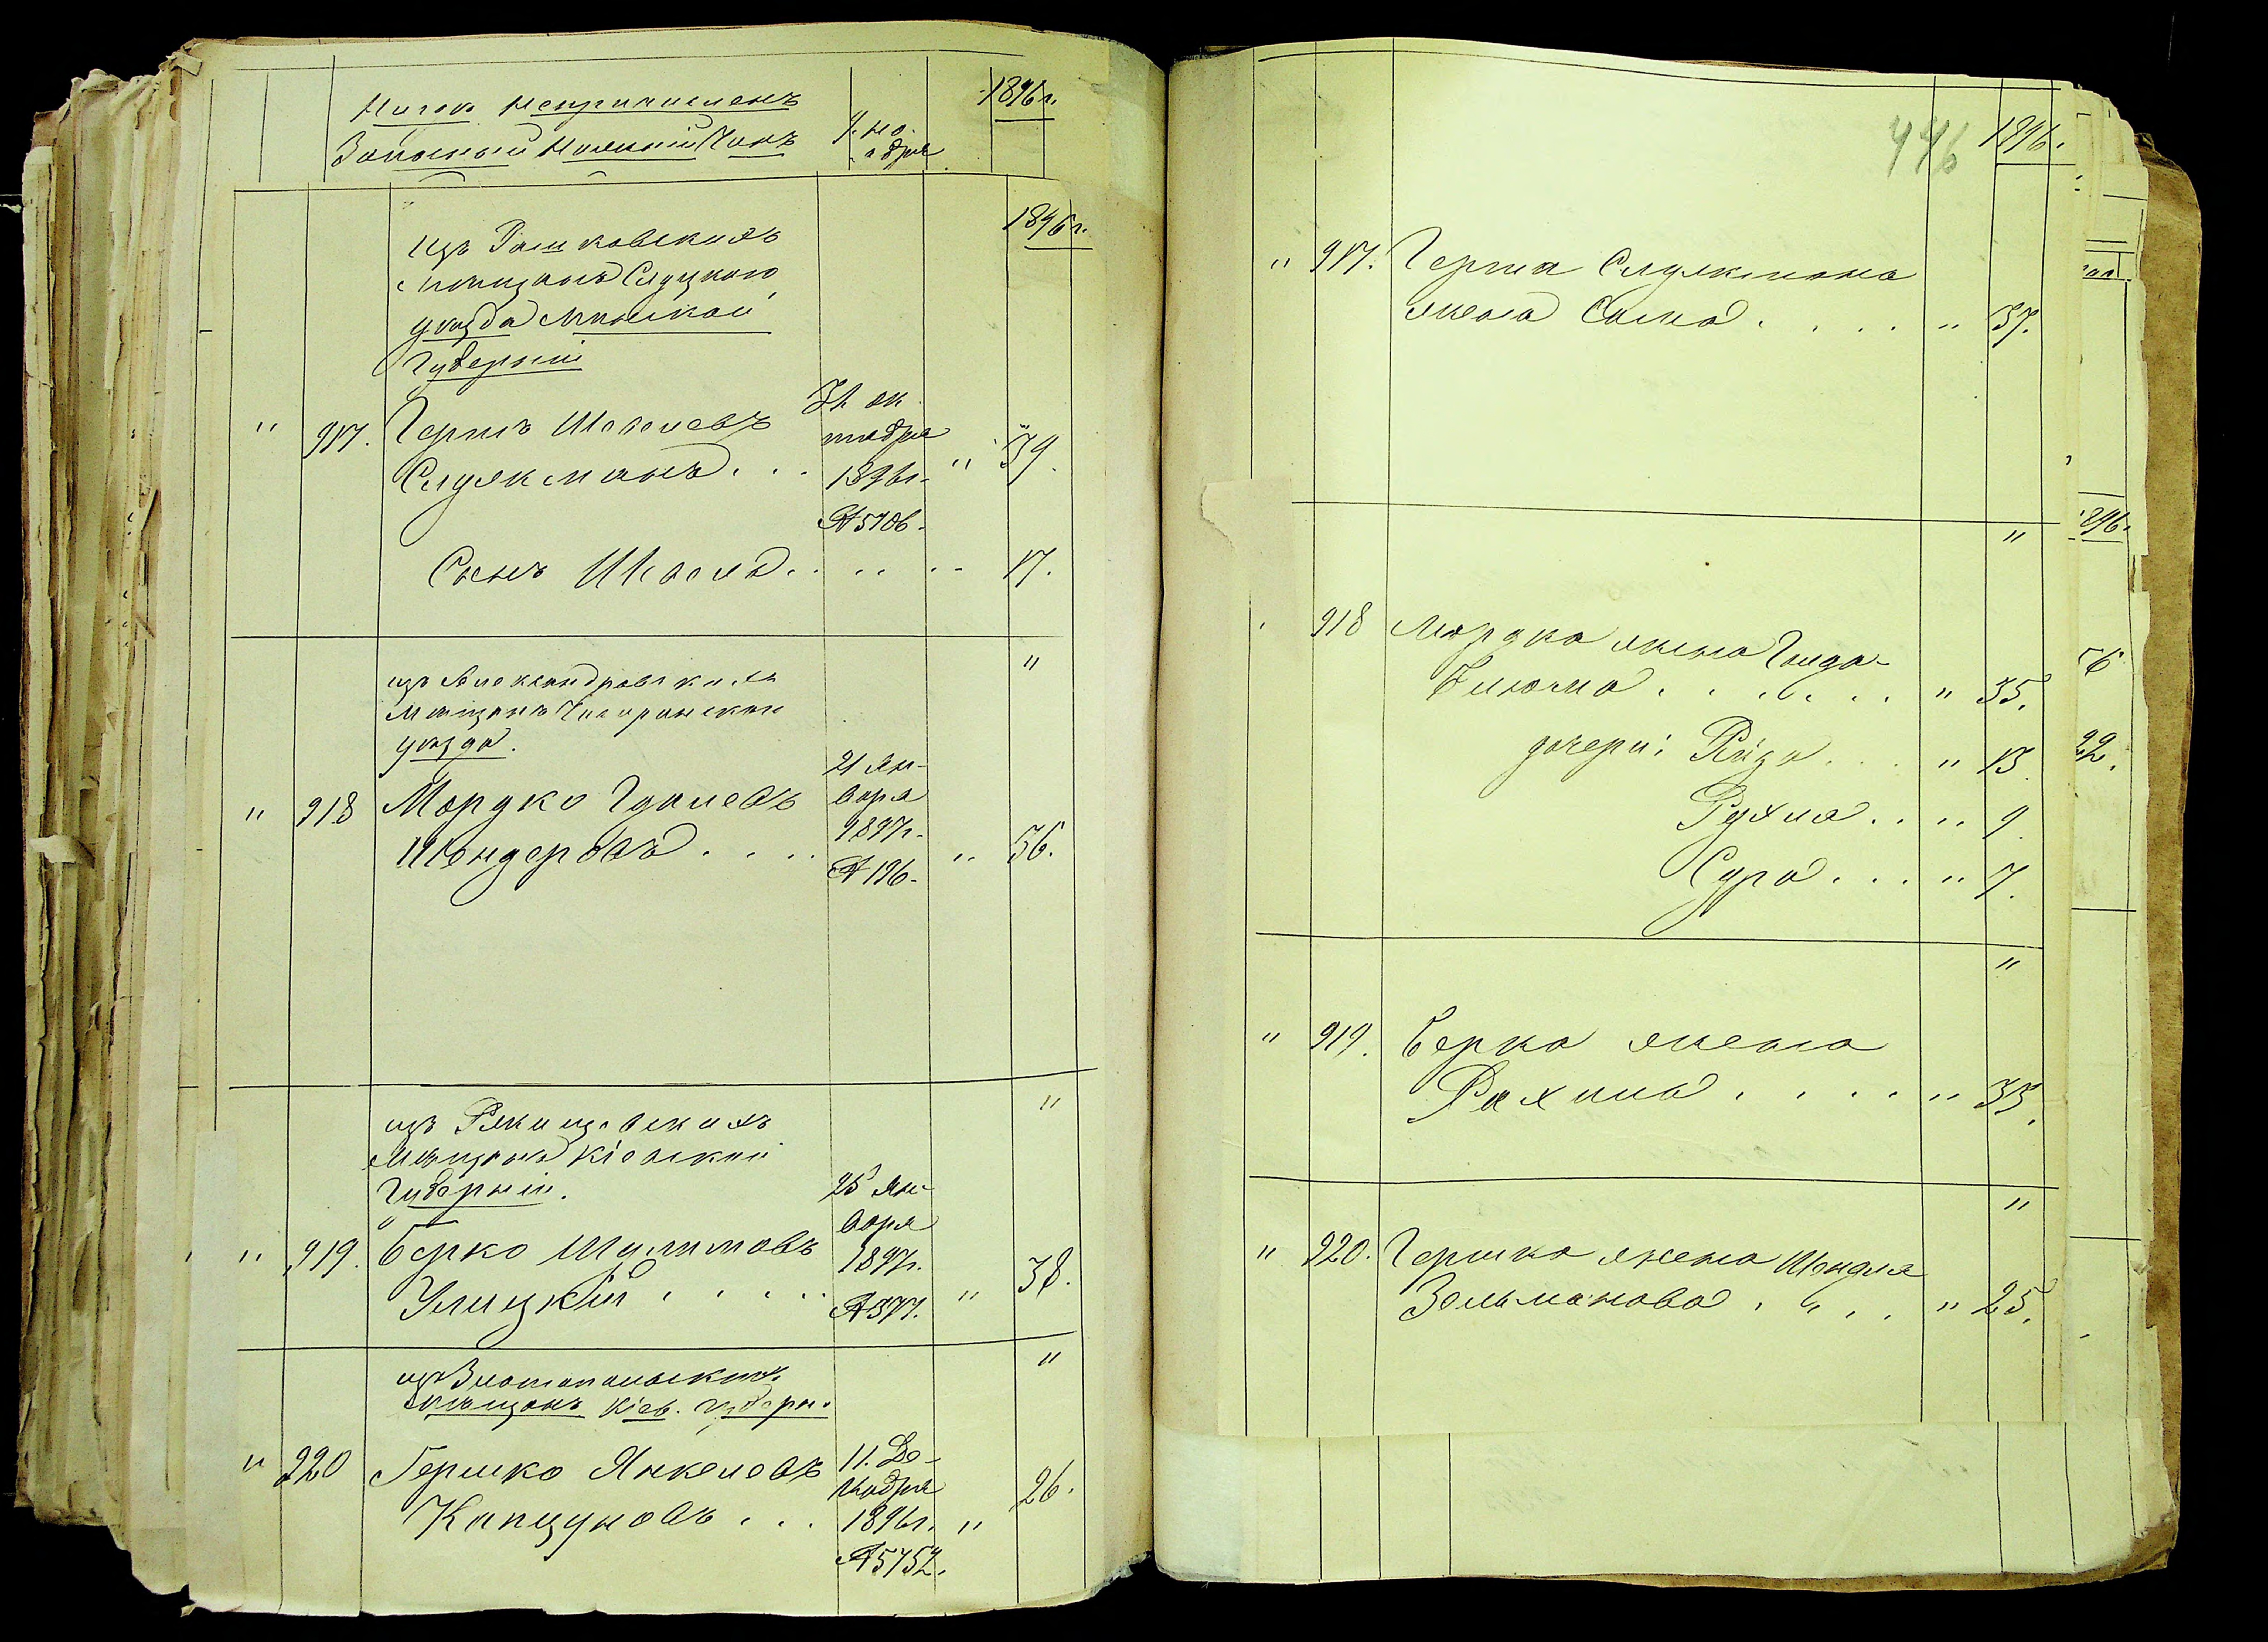 1896 г.
Запасный Нижній Чинъ
1896 г.
изъ
мѣщанъ Слуцкаго
уѣзда Минской
Губерніи
" 917. Гершъ
Служманъ . . . 31 ок-
тября
1896 г.
№ 5106. " 39.
Сынъ . . . . 17.
"
изъ Александровскихъ
мѣщанъ Чигиринскаго
уѣзда.
" 918 Мордко Гдалевъ
Шендеровъ . . . . 21 Ян-
варя
1897 г.
№ 196. " 36.
"
изъ Ржищевскихъ
мѣщанъ Кіевской
Губерніи.
" 919. Берко Шулимовъ
Улицкій . . . . 25 Ян-
варя
1897 г.
№ 377. " 38.
"
изъ Златопольскихъ
мѣщанъ Кіев. Губерн.
" 920 Гершко Янкелевъ
Капцуновъ . . . 11 Де-
кабря
1896 г.
№ 5752. " 26.
446
1896.
" 917. Герша Служмана
жена . . . . " 37.
"
918 Мордка жена Гинда-
Блюма . . . . . . " 35.
дочери: Ройза . . . " 13.
Рухля . . " 9.
Сура . . . " 7.
"
" 919. Берка жена
Рахиль . . . . " 35.
"
" 920. Гершка жена Шендля
Зельманова . . . . " 25.
1896.
22.